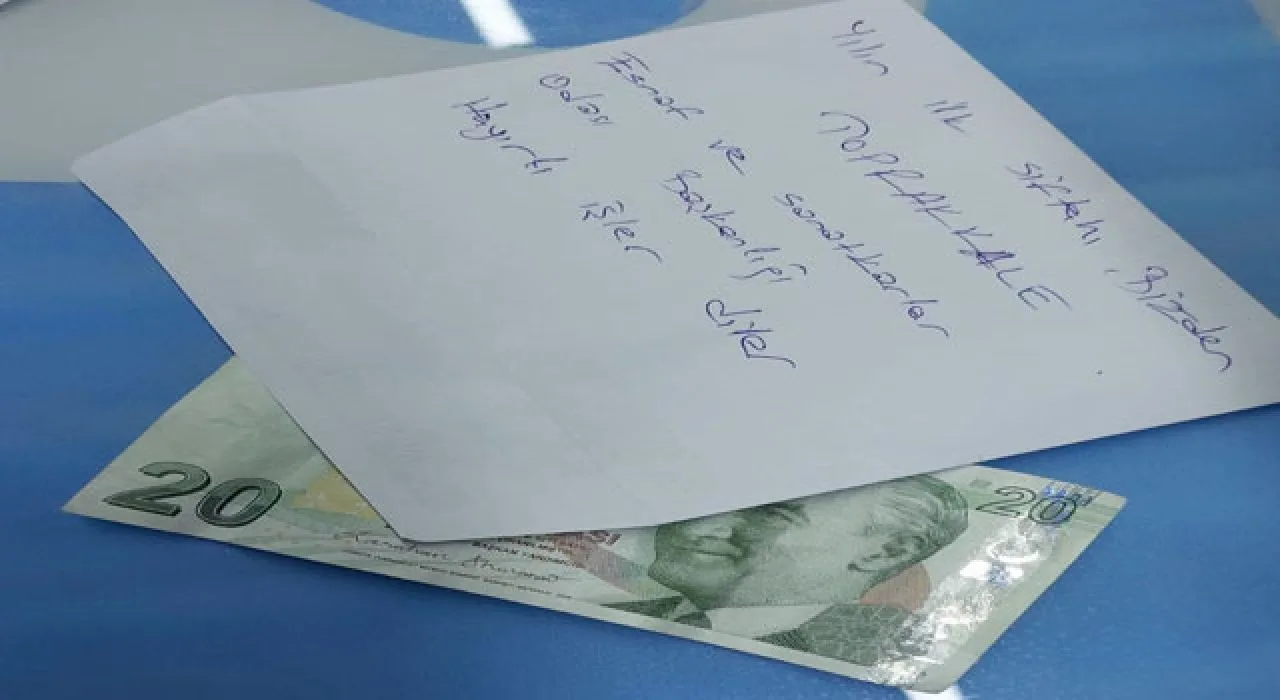 Yılın ilk siftahı, Bizden
TOPRAKKALE
Esnaf ve sanatkarlar
Odası Başkanlığı
Hayırlı işler diler
20
20